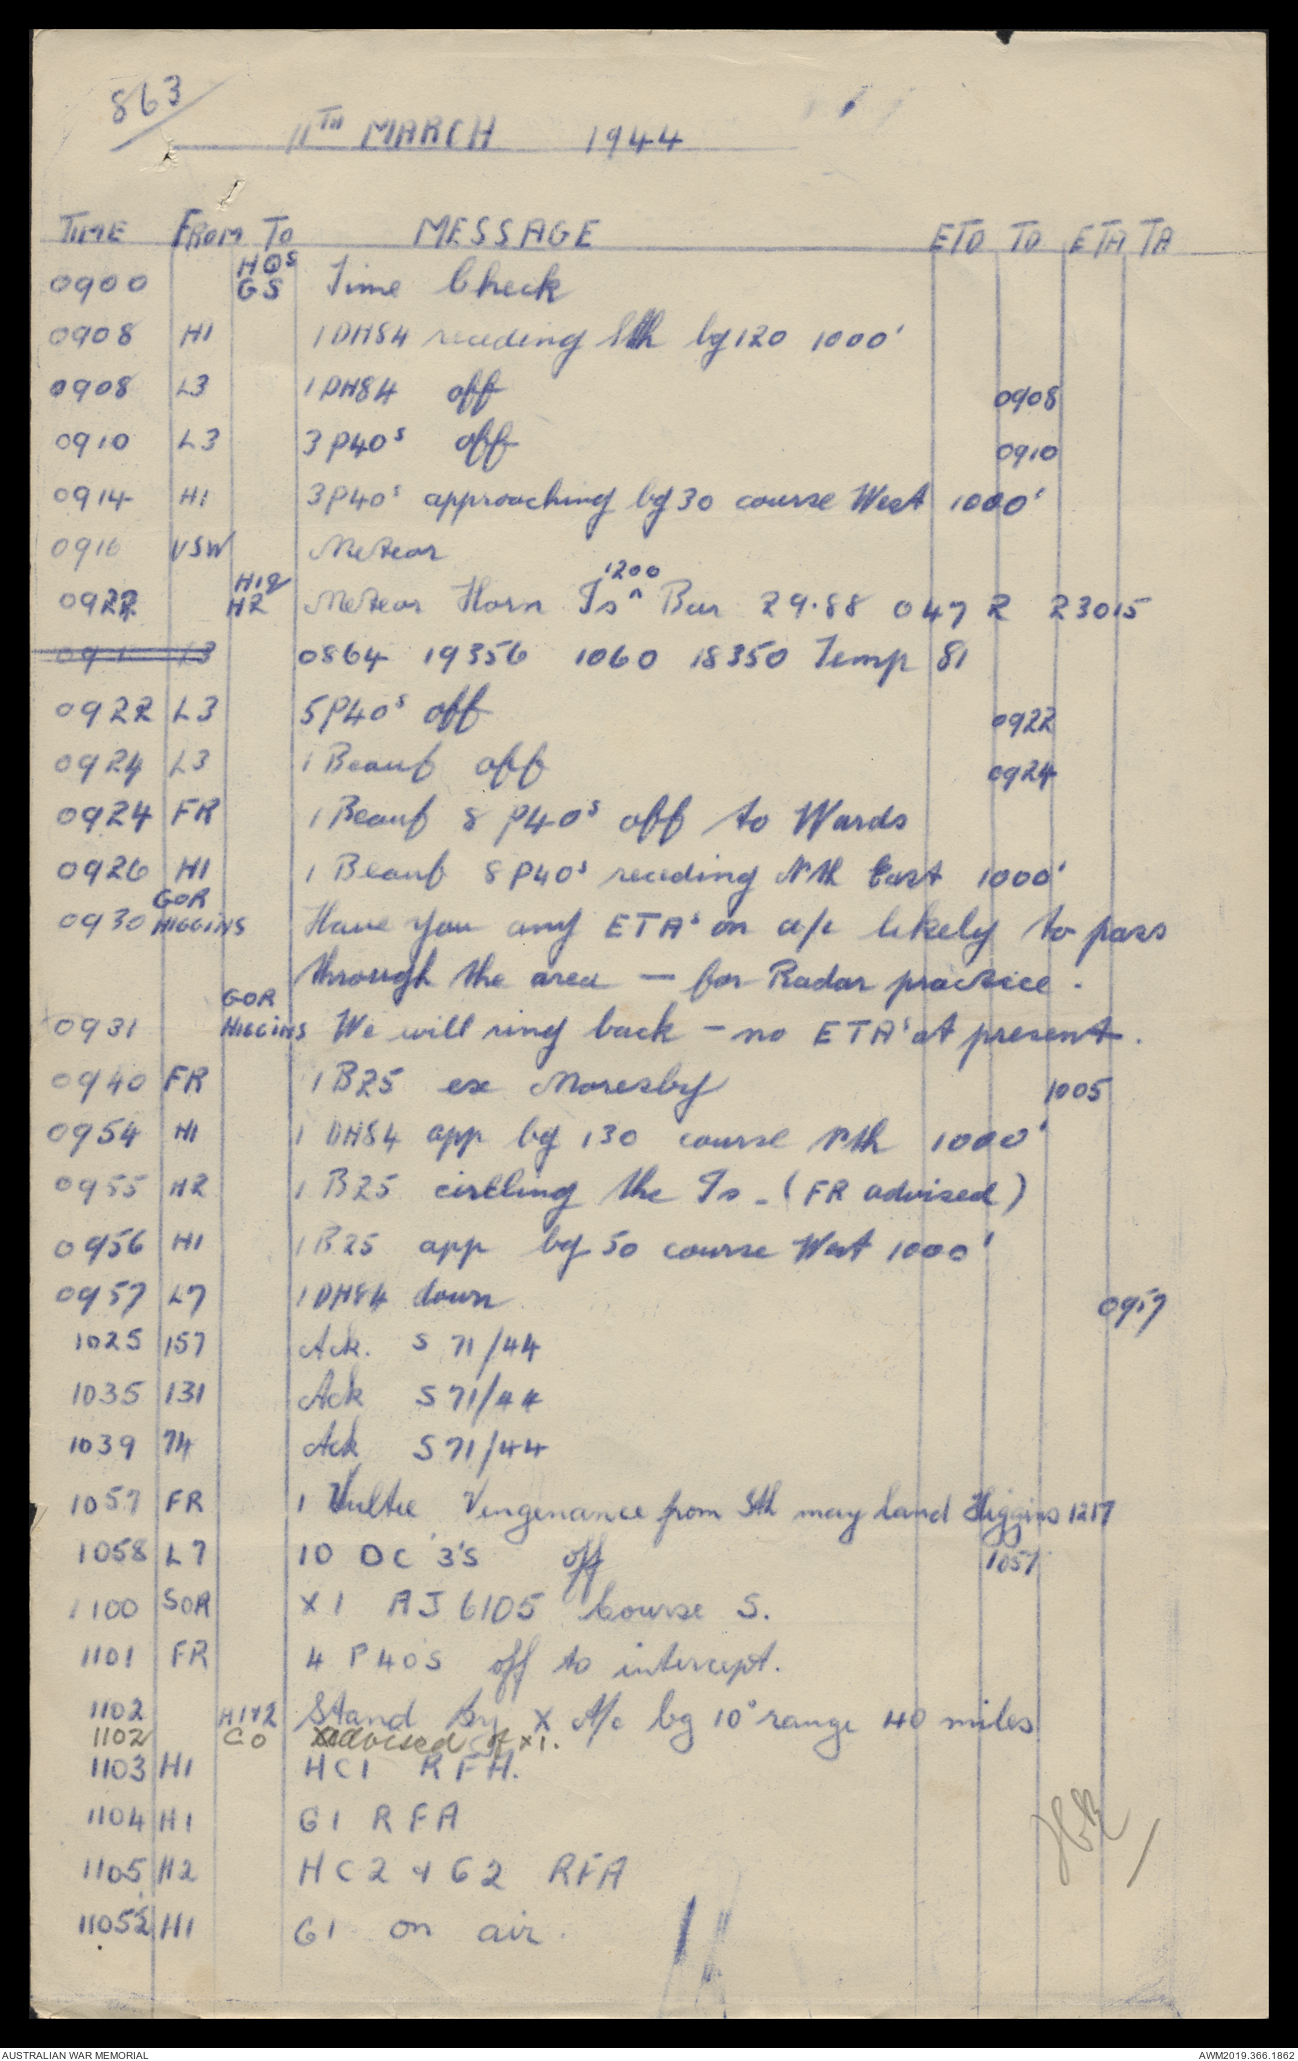 863
11TH MARCH 1944
TIME FROM TO MESSAGE ETD TD ETA TA
0900 HQS GS Time Check
0908 H1 1 DH84 receding Sth bg 120 1000'
0908 L3 1 DH84 off 0908
0910 L3 3 P40s off 0910
0914 H1 3 P40s approaching bg 30 course West 1000'
0916 VSW Meteor
0922 H1&H2 Meteor Horn Is ^1200 Bar 29.88 047 2 23015
0864 19356 1060 18350 Temp 81
0922 L3 5 P40s off 0922
0924 L3 1 Beauf off 0924
0924 FR 1 Beauf 8 P40s off to Wards
0926 H1 1 Beauf 8 P40s receding Nth East 1000'
0930 GOR HIGGINS Have you any ETA's on a/c likely to pass
through the area — for Radar practice.
0931 GOR HIGGINS We will ring back - no ETA's at present.
0940 FR 1 B25 ex Moresby 1005
0954 H1 1 DH84 app bg 130 course Nth 1000'
0955 H2 1 B25 circling the Is - (FR advised)
0956 H1 1 B25 app bg 50 course West 1000'
0957 L7 1 DH84 down 0957
1025 157 Ack. S 71/44
1035 131 Ack S 71/44
1039 74 Ack S 71/44
1057 FR 1 Vultee Vengenance from Sth may land Higgins 1217
1058 L7 10 DC 3's off 1057
1100 SOR X1 AJ 6105 Course S.
1101 FR 4 P40's off to intercept.
1102 H1&2 Stand By X A/c bg 10° range 40 miles
1102 CO Advised of X1.
1103 H1 HC1 RFA.
1104 H1 G1 RFA
1105 H2 HC2 & G2 RFA
1105½ H1 G1 on air.
AUSTRALIAN WAR MEMORIAL AWM2019.366.1862